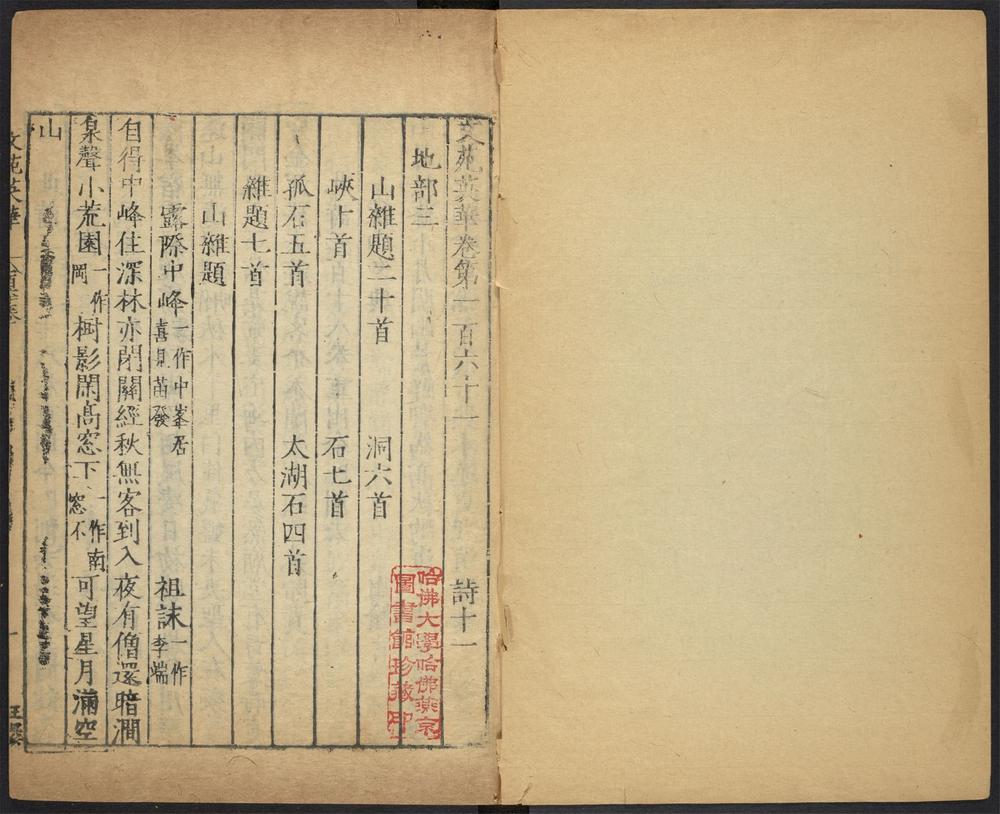 文苑英華卷第一百六十一 詩十一
地部三
山雜題二十首 洞六首
峽十首 石七首
孤石五首 太湖石四首
雜題七首
山雜題
露際中峰一作中峯居喜見苗發 祖詠一作李端
自得中峰住深林亦閉關經秋無客到入夜有僧還暗澗
泉聲小荒園一作岡樹影閑高窓下一作南窓不可望星月滿空
山
文苑英華
哈佛大學哈佛燕京
圖書館珍藏印